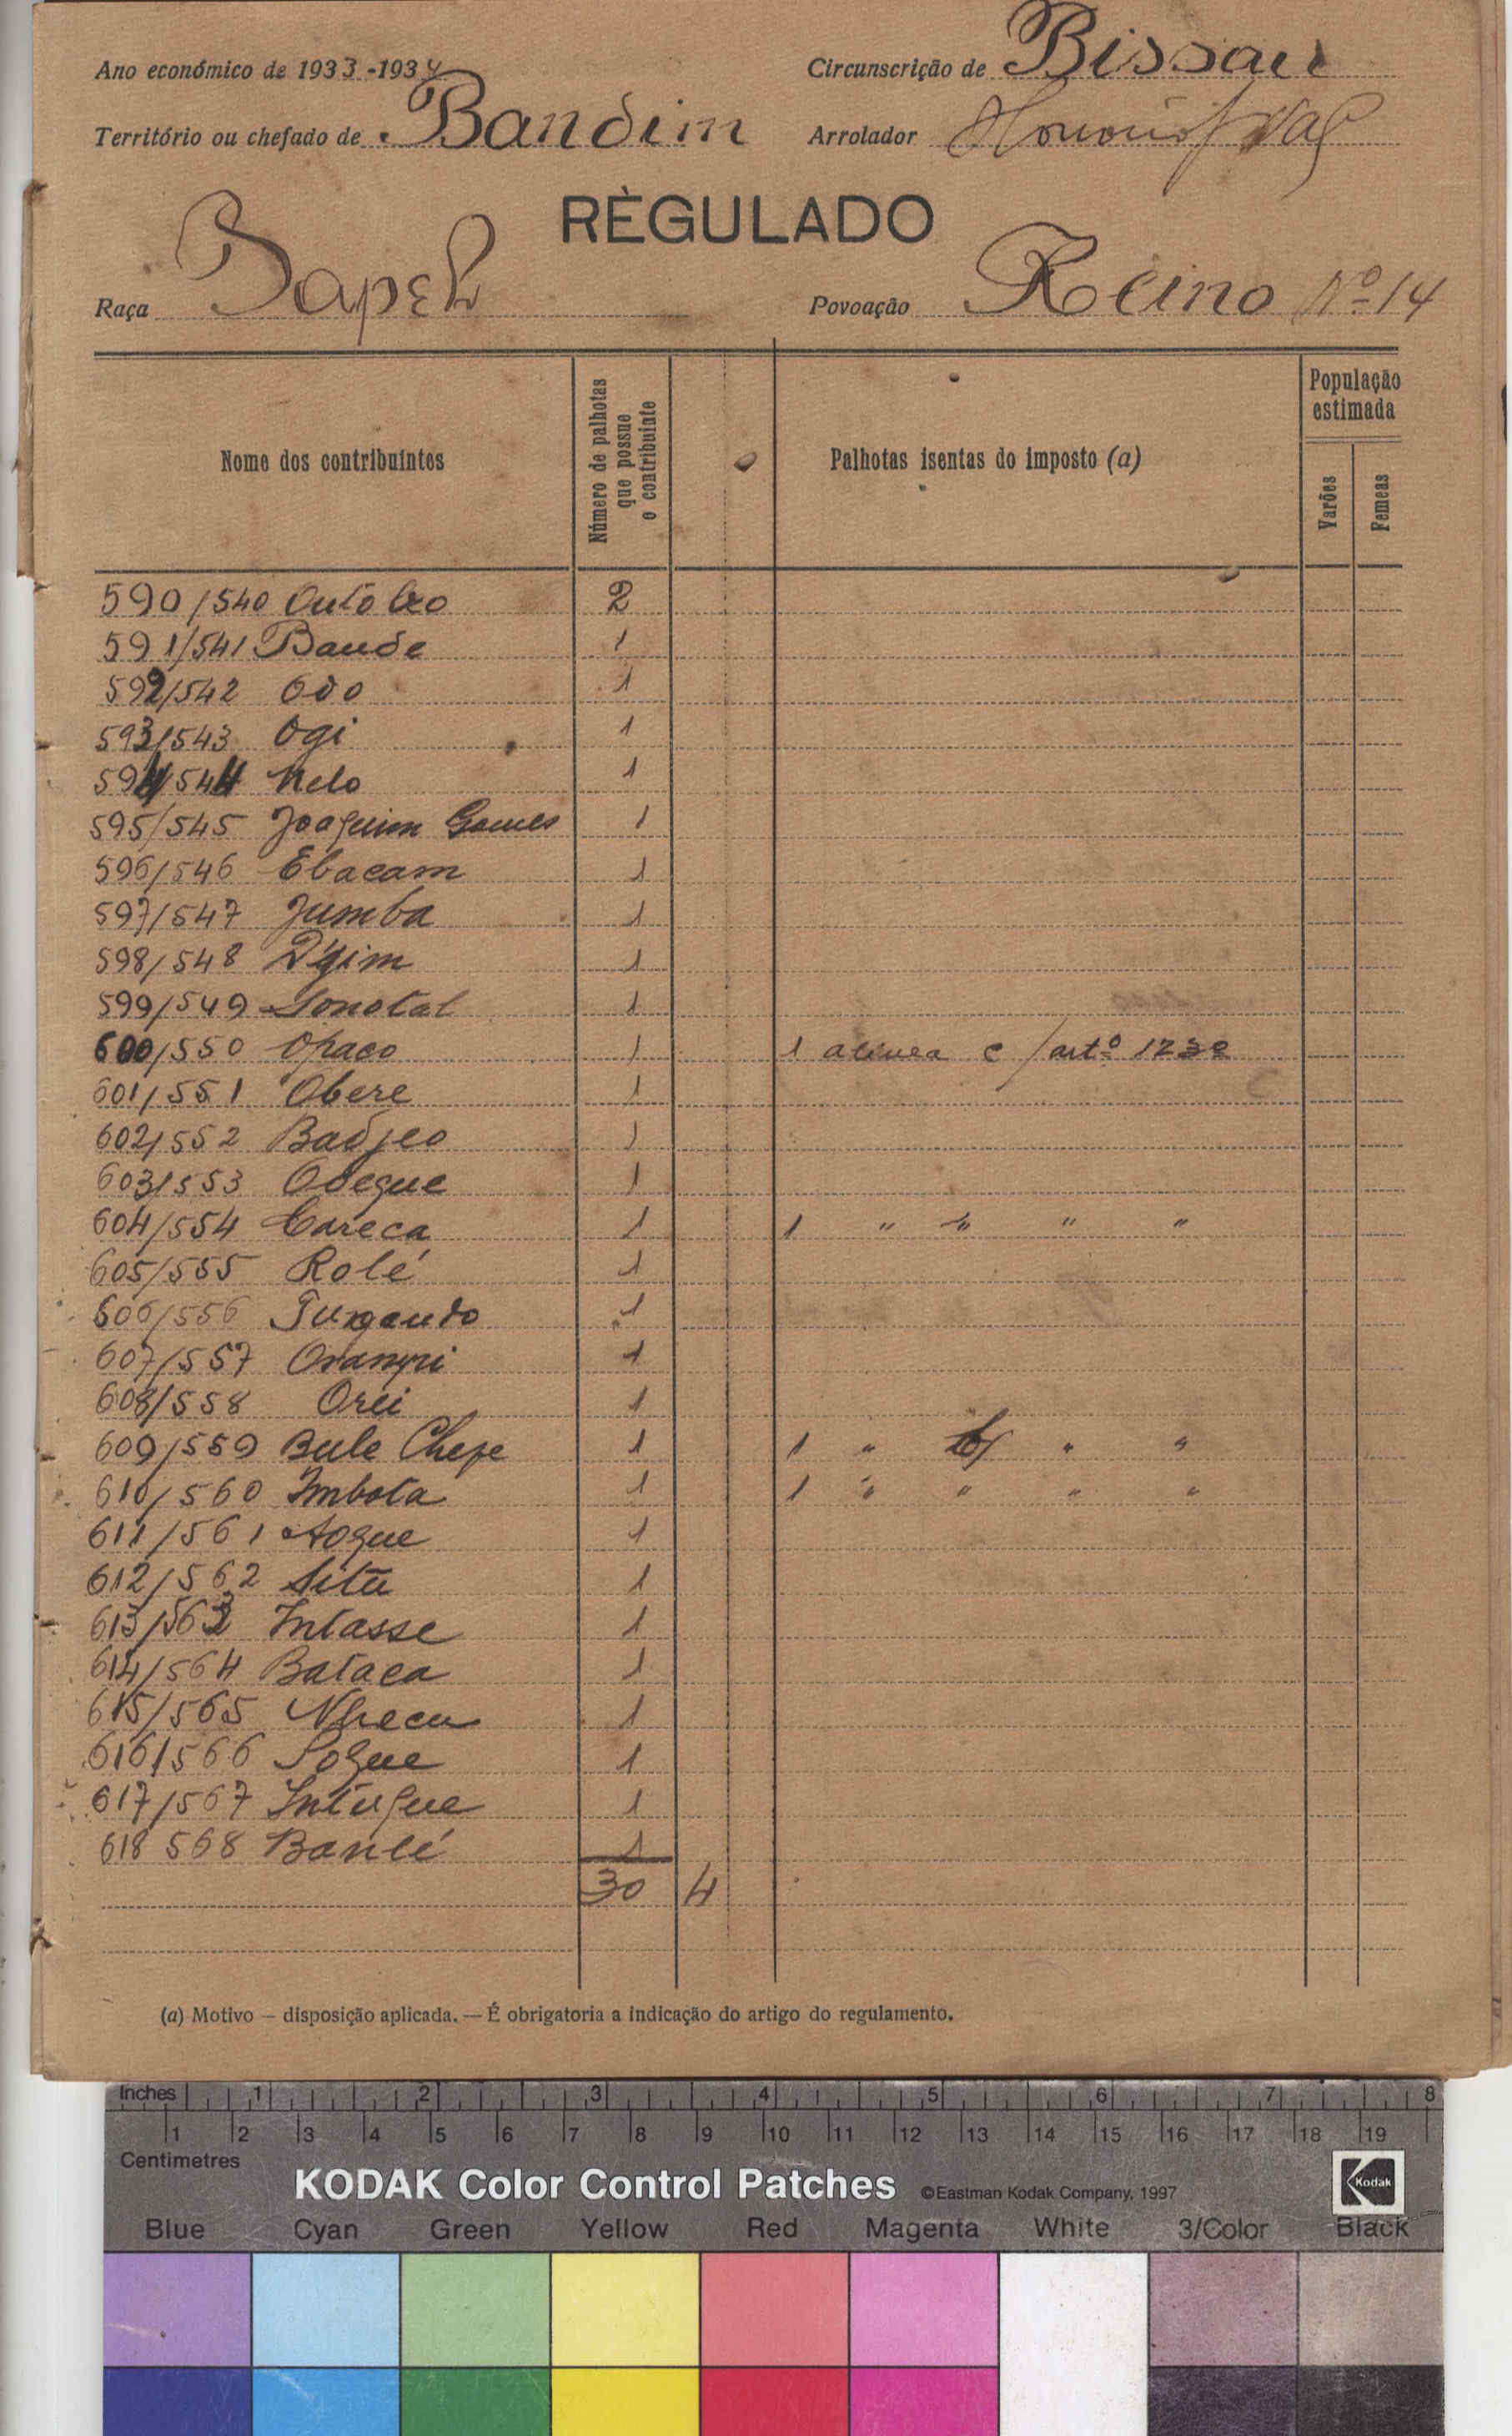 Ano económico de 1933-1934
Circunscrição de Bissau
Território ou chefado de Bandim
Arrolador
RÈGULADO
Raça Papel
Povoação Reino Nº 14
Nome dos contribuintes
Número de palhotas que possue o contribuinte
Palhotas isentas do imposto (a)
População estimada
Varões
Femeas
590/540 Outobro 2
591/541 Baude 1
592/542 Odo 1
593/543 Ogi 1
594/544 Nelo 1
595/545 Joaquim Gomes 1
596/546 Ebacam 1
597/547 Jumba 1
598/548 D'gim 1
599/549 1
600/550 Opaco 1 1 alinea c/artº 123º
601/551 Obere 1
602/552 Badjeo 1
603/553 Odeque 1
604/554 Careca 1 1 " " " "
605/555 Rolé 1
606/556 1
607/557 1
608/558 Orei 1
609/559 Bule Chefe 1 1 " b/ " "
610/560 Imbota 1 1 " " " "
611/561 Aoque 1
612/562 Situ 1
613/563 Intasse 1
614/564 Bataca 1
615/565 1
616/566 Poque 1
617/567 Intuque 1
618 568 Banlé 1
30 4
(a) Motivo — disposição aplicada. — É obrigatoria a indicação do artigo do regulamento.
Inches 1 2 3 4 5 6 7 8
1 2 3 4 5 6 7 8 9 10 11 12 13 14 15 16 17 18 19
Centimetres
KODAK Color Control Patches ©Eastman Kodak Company, 1997 Kodak
Blue Cyan Green Yellow Red Magenta White 3/Color Black